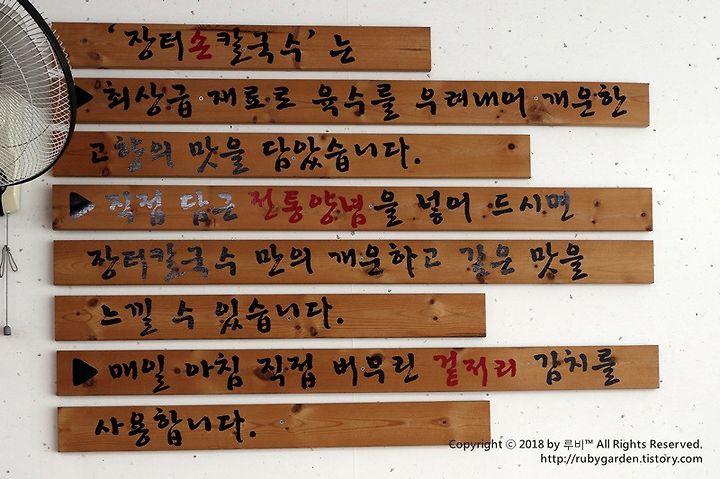 '장터손칼국수'는
▶최상급 재료로 육수를 우려내어 개운한
고향의 맛을 담았습니다.
▶직접 담근 전통양념을 넣어 드시면
장터칼국수 만의 개운하고 깊은 맛을
느낄 수 있습니다.
▶매일 아침 직접 버무린 겉저리 김치를
사용합니다.
Copyright ⓒ 2018 by 루비™ All Rights Reserved.
http://rubygarden.tistory.com